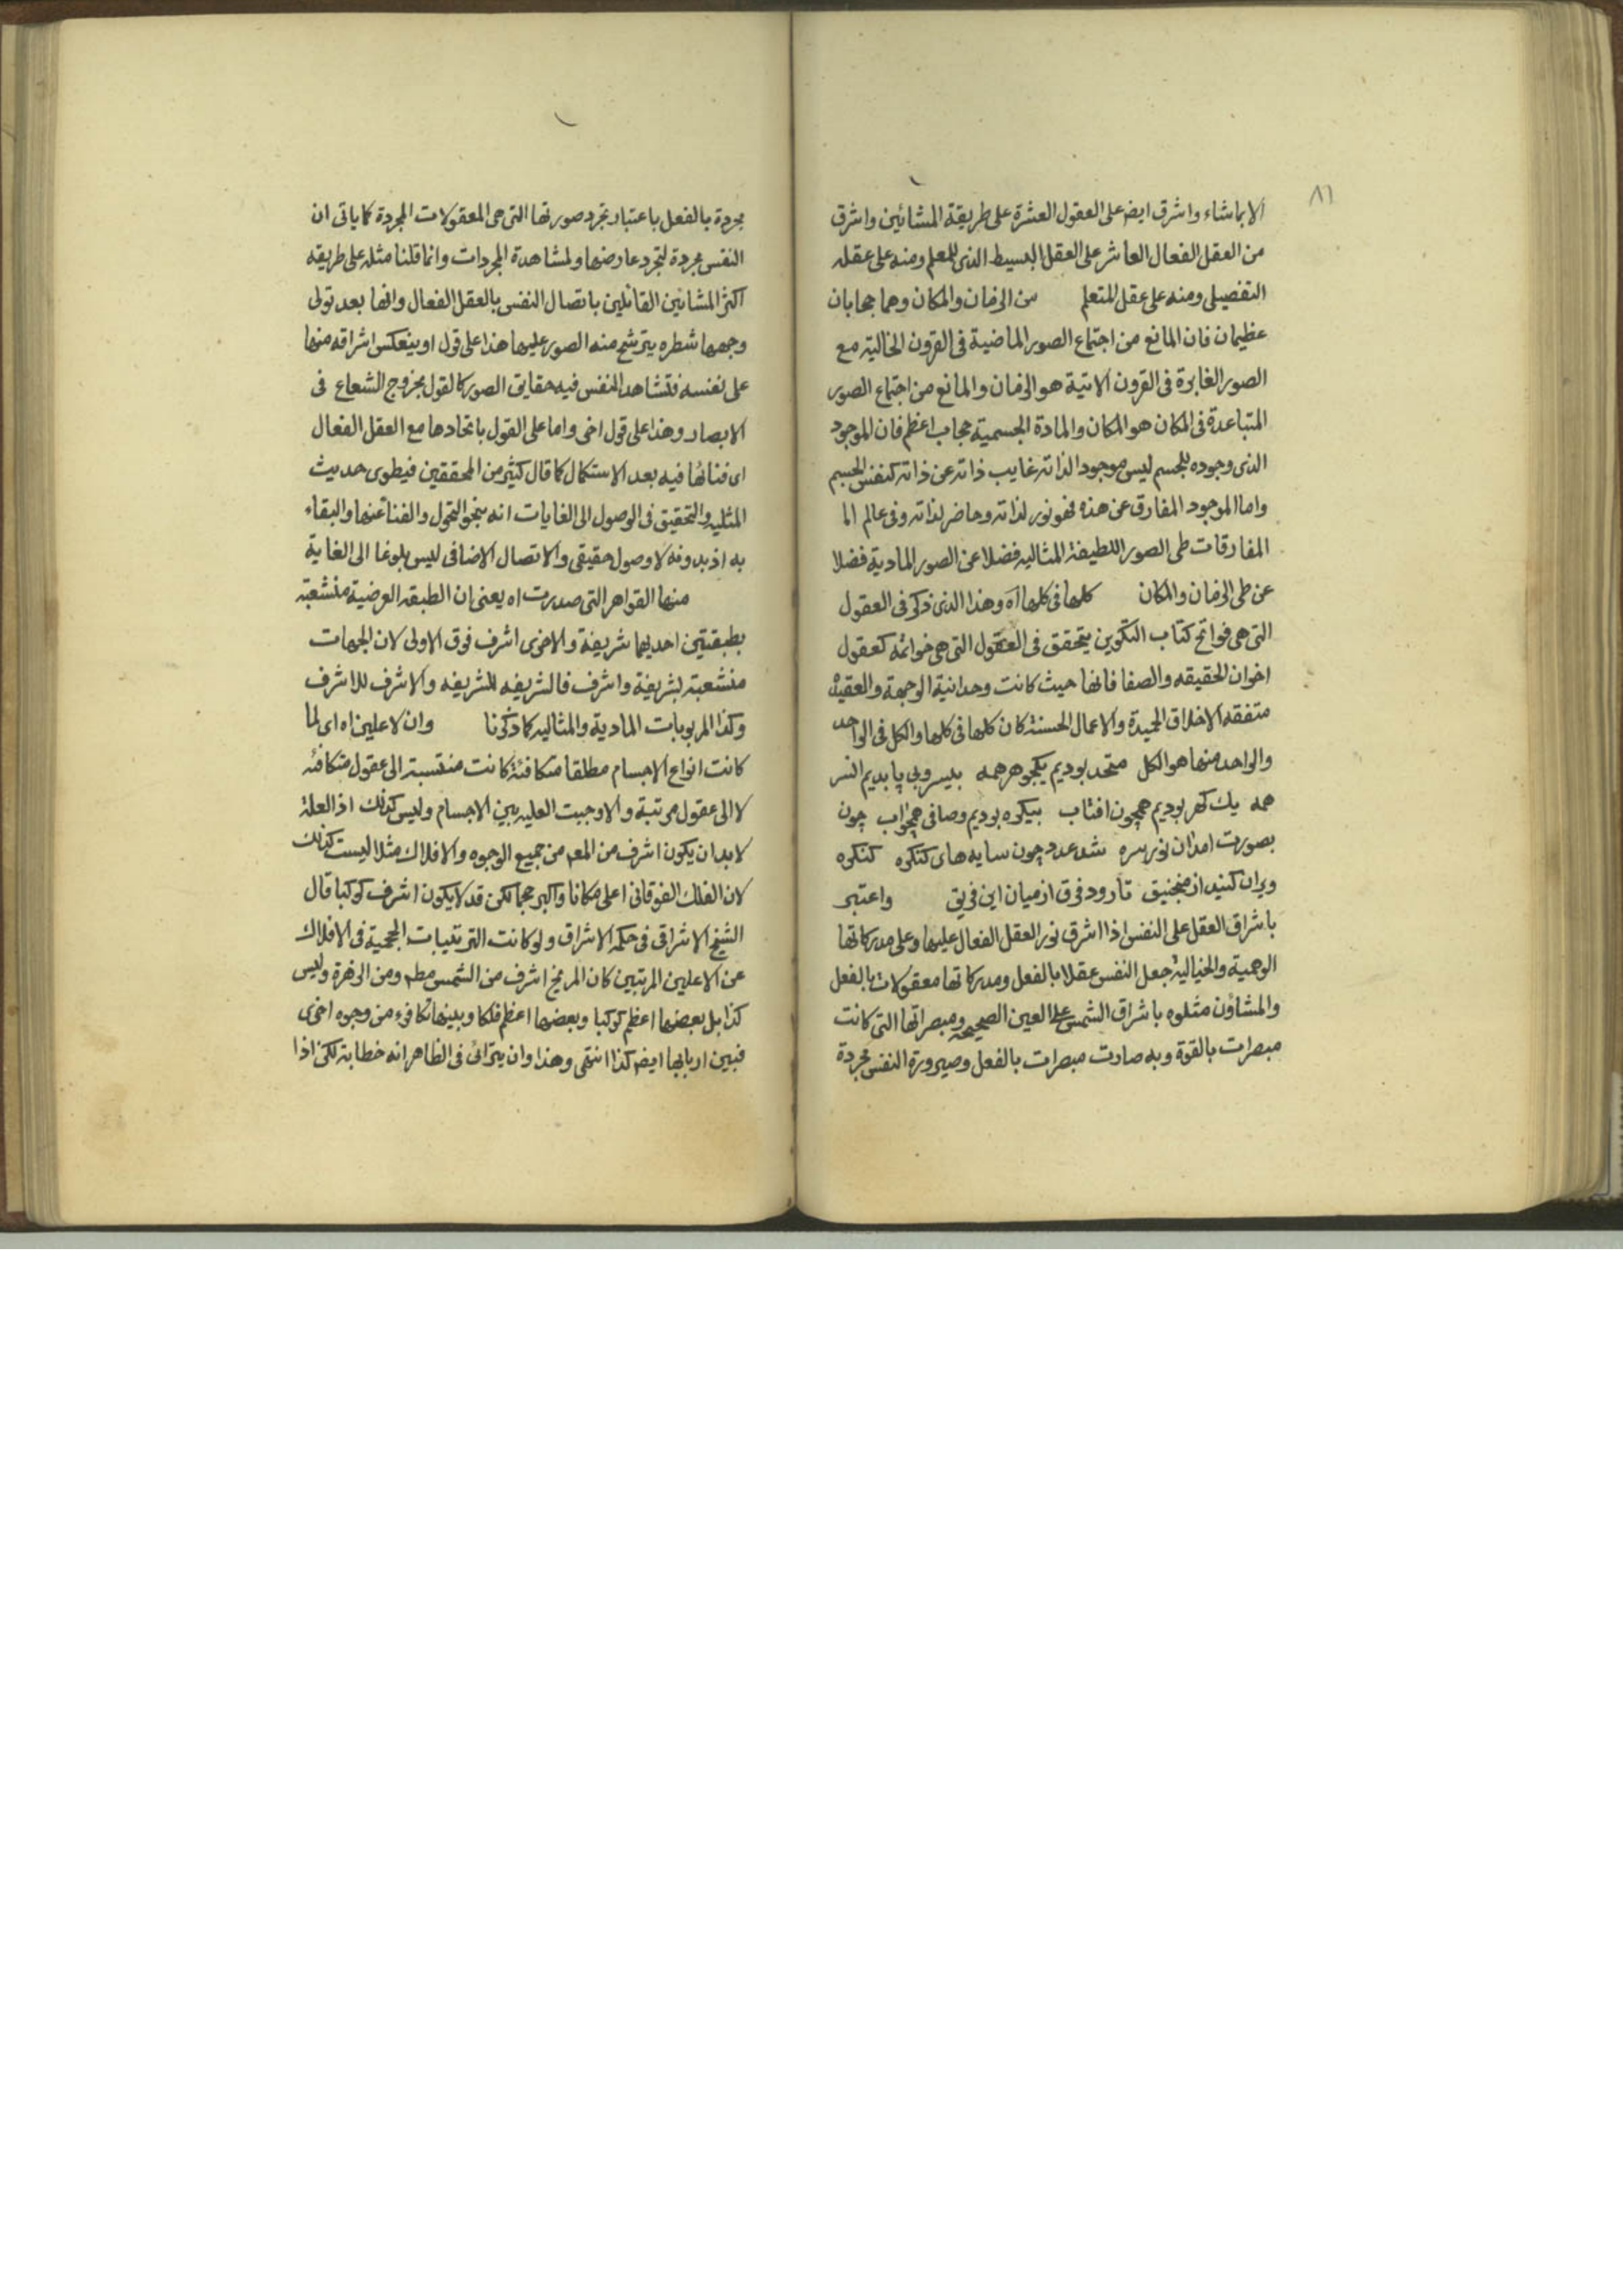 ٨٦
الا بماشاء واشرق ايضه على العقول العشرة على طريقة المشائين واشرق
من العقل الفعال العاشر على العقل البسيط الذى للمعلم ومنه على عقله
التفصيلى ومنه على عقل المتعلم من الزمان والمكان وهما حجابان
عظيمان فان المانع من اجتماع الصور الماضية فى القرون الخالية مع
الصور الغابرة فى القرون الاتية هو الزمان والمانع من اجتماع الصور
المتباعدة فى المكان هو المكان والمادة الجسمية حجاب اعظم فان الموجود
الذى وجوده للجسم ليس موجودا لذاته غايب ذاته عن ذاته كنفس الجسم
واما الموجود المفارق عن هذه فهو نور لذاته وحاضر لذاته وفى عالم الا
المفارقات طى الصور اللطيفة المثاليه فضلا عن الصور المادية فضلا
عن طى الزمان والمكان كلها فى كلها اه وهذا الذى ذكر فى العقول
التى هى فواتح كتاب التكوين يتحقق فى العقول التى هى خواتمه كعقول
اخوان الحقيقه والصفا فانها حيث كانت وحدانية الوجهة والعقيدة
متفقه الاخلاق الحميدة والاعمال الحسنة كان كلها فى كلها والكل فى الواحد
والواحد منها هو الكل متحد بوديم يكجوهر همه بيسر وبى پا بديم انسر
همه يك كهر بوديم همچون افتاب بيكره بوديم وصافى همچواب چون
بصورت امد ان نور سره شد عدد چون سايه هاى كنكره كنكره
ويران كنيد از منجنيق تا رود فرق از ميان اين فريق واعتبر
باشراق العقل على النفس اذا اشرق نور العقل الفعال عليها وعلى مدركاتها
الوهمية والخيالية جعل النفس عقلا بالفعل ومدركاتها معقولات بالفعل
والمشاؤن مثلوه باشراق الشمس على العين الصحيحه ومبصراتها التى كانت
مبصرات بالقوة وبه صارت مبصرات بالفعل وصيرورة النفس مجردة
مجردة بالفعل باعتبار تجرد صورتها التى هى المعقولات المجردة كما ياتى ان
النفس مجردة لتجرد عارضها ولمشاهدة المجردات وانما قلنا مثله على طريقه
اكثر المشائين القائلين باتصال النفس بالعقل الفعال وانها بعد تولى
وجهها شطره يترشح منه الصور عليها هذا على قول او ينعكس اشراقه منها
على نفسه فتشاهد النفس فيه حقايق الصور كالقول بخروج الشعاع فى
الابصار وهذا على قول اخر واما على القول باتحادها مع العقل الفعال
اى فنائها فيه بعد الاستكمال كما قال كثير من المحققين فيطوى حديث
المثليه والتحقيق فى الوصول الى الغايات انه بنحو التحول والفنا عنها والبقاء
به اذ بدونه لا وصول حقيقى والاتصال الاضافى ليس بلوغا الى الغاية
منها القواهر التى صدرت اه يعنى ان الطبقه العرضية منشعبة
بطبقتين احديهما شريفة والاخرى اشرف فوق الاولى لان الجهات
منشعبة لشريفة واشرف فالشريفه للشريفه والاشرف للاشرف
وكذا المربوبات المادية والمثاليه كما ذكرنا وان لا علين اه اى لما
كانت انواع الاجسام مطلقا متكافئة كانت منتسبة الى عقول متكافئه
لا الى عقول مرتبة والا وجبت العليه بين الاجسام وليس كذلك اذ العلة
لابد ان يكون اشرف من المعه من جميع الوجوه والافلاك مثلا ليست كذلك
لان الفلك الفوقانى اعلى مكانا واكبر حجما لكن قد لا يكون اشرف كوكبا قال
الشيخ الاشراقى فى حكمه الاشراق ولو كانت الترتيبات الحجمية فى الافلاك
عن الاعلين المرتبين كان المريخ اشرف من الشمس مطه ومن الزهرة وليس
كذا بل بعضها اعظم كوكبا وبعضها اعظم فلكا وبينها تكافوء من وجوه اخرى
فبين اربابها ايضه كذا انتهى وهذا وان يترائى فى الظاهر انه خطابة لكن اذا